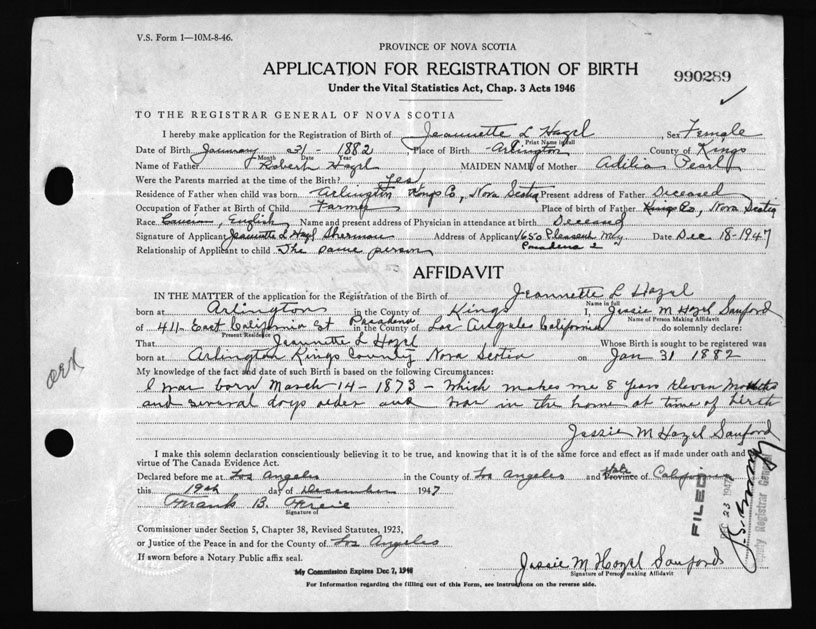 V.S. Form 1—10M-8-46.
PROVINCE OF NOVA SCOTIA
APPLICATION FOR REGISTRATION OF BIRTH
990289
Under the Vital Statistics Act, Chap. 3 Acts 1946
TO THE REGISTRAR GENERAL OF NOVA SCOTIA
I hereby make application for the Registration of Birth of Jeannette L Hazel, Sex Female
Print Name in full
Date of Birth January 31 - 1882, Place of Birth Arlington County of Kings
Month Date Year
Name of Father Robert Hazel MAIDEN NAME of Mother Adilia Pearl
Were the Parents married at the time of the Birth? Yes
Residence of Father when child was born Arlington Kings Co, Nova Scotia Present address of Father Deceased
Occupation of Father at Birth of Child Farmer Place of birth of Father Kings Co, Nova Scotia
Race English Name and present address of Physician in attendance at Birth Deceased
Signature of Applicant Jeannette L Hazel Sherman Address of Applicant 1650 Pleasant Way Date Dec 18-1947
Pasadena 2
Relationship of Applicant to child The same person
AFFIDAVIT
IN THE MATTER of the application for the Registration of the Birth of Jeannette L Hazel
Name in full
born at Arlington in the County of Kings I, Jessie M Hazel Sanford
Name of Person Making Affidavit
of 411 East California St Pasadena in the County of Los Angeles California do solemnly declare:
Present Residence
That Jeannette L Hazel Whose Birth is sought to be registered was
born at Arlington Kings County Nova Scotia on Jan 31 1882
My knowledge of the fact and date of such Birth is based on the following Circumstances:
I was born March 14 - 1873 - which makes me 8 years eleven months
and several days older and was in the home at time of birth
Jessie M Hazel Sanford
I make this solemn declaration conscientiously believing it to be true, and knowing that it is of the same force and effect as if made under oath and
virtue of The Canada Evidence Act.
Declared before me at Los Angeles in the County of Los Angeles and State Province of California
this 19th day of December 1947
Frank B.
Signature of
Commissioner under Section 5, Chapter 38, Revised Statutes, 1923,
or Justice of the Peace in and for the County of Los Angeles
If sworn before a Notary Public affix seal.
My Commission Expires Dec 7, 1948
Jessie M Hazel Sanford
Signature of Person making Affidavit
For Information regarding the filling out of this Form, see instructions on the reverse side.
FILED
23 1947
Deputy Registrar General